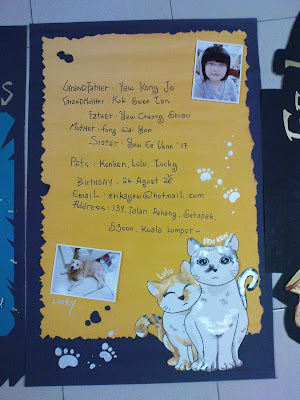 Grandfather : Yew Kong Jo
Grandmother : Kok Swee Lan
Father : Yew Cheong Shiau
Mother : Fong Wai Yen
Sister : Yew Ee Venn '17
Pets : Kenken, Lulu, Lucky
Birthday : 24 August
Email : erikayew@hotmail.com
Address : 139, Jalan Pahang, Setapak,
53000, Kuala Lumpur ~
Ken Ken
Lulu
Lucky